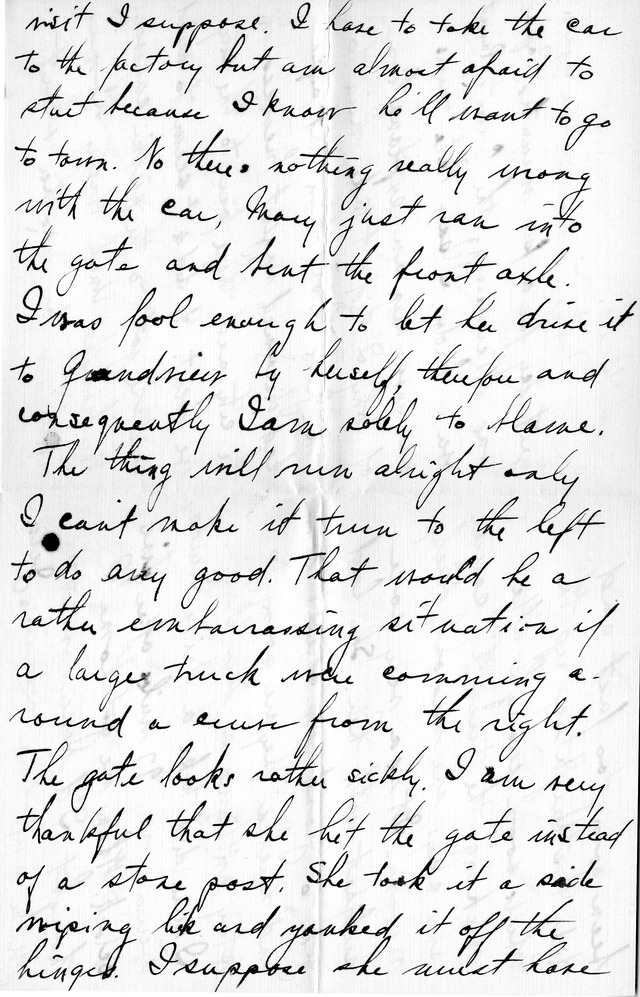 visit I suppose. I have to take the car
to the factory but am almost afraid to
start because I know he'll want to go
to town. No theres nothing really wrong
with the car, Mary just ran into
the gate and bent the front axle.
I was fool enough to let her drive it
to Grandview by herself, therefore and
consequently I am solely to blame.
The thing will run alright only
I cant make it turn to the left
to do any good. That would be a
rather embarrassing situation if
a large truck were comming a-
round a curve from the right.
The gate looks rather sickly. I am very
thankful that she hit the gate instead
of a stone post. She took it a side
wiping lick and yanked it off the
hinges. I suppose she must have